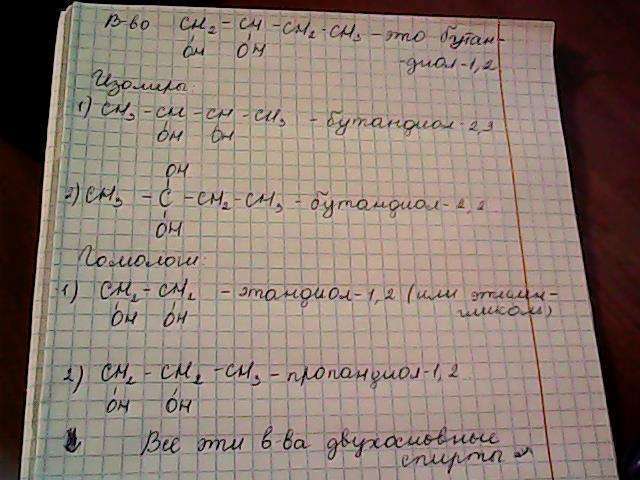 В-во CH₂ - CH - CH₂ - CH₃ - это бутан-
OH OH -диол-1,2
Изомеры:
1) CH₃ - CH - CH - CH₃ - бутандиол-2,3
OH OH
OH
2) CH₃ - C - CH₂ - CH₃ - бутандиол-2,2
OH
Гомологи:
1) CH₂ - CH₂ - этандиол-1,2 (или этилен-
OH OH гликоль)
2) CH₂ - CH₂ - CH₃ - пропандиол-1,2
OH OH
Все эти в-ва двухосновные
спирты